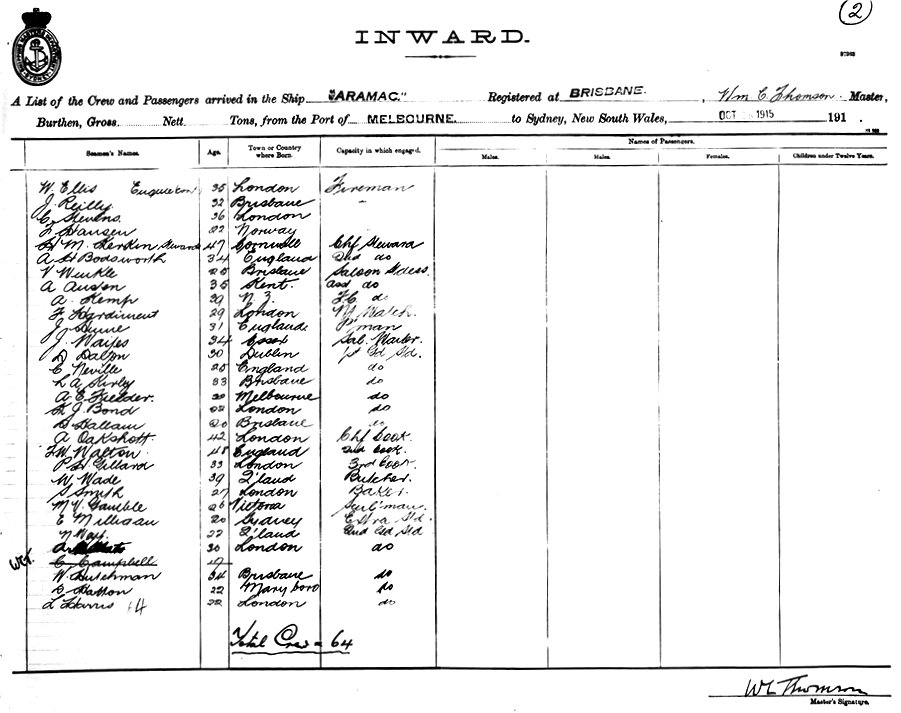 (2)
INWARD.
A List of the Crew and Passengers arrived in the Ship "ARAMAC." Registered at BRISBANE. , Wm C. Thomson. Master,
Burthen, Gross Nett Tons, from the Port of MELBOURNE. to Sydney, New South Wales, OCT 1915 191 .
Seamen's Names. Age. Town or Country where Born. Capacity in which engaged. Names of Passengers.
Males. Males. Females. Children under Twelve Years.
W. Ellis 35 London Fireman
J. Reilly. 32 Brisbane
C. Stevens. 36 London
Hansen 22 Norway
M. 47 Cornwall Chf Steward
A H Bodsworth 34 England 2nd do
V Winkle 25 Brisbane Saloon Stdess.
A Austen 35 Kent. asst do
A. Kemp 39 N. Z. F.C. do
F Hardiment 29 London Nt Watch.
J. 31 England P'man
J. 34 Essex Sal. Waiter.
D Dalton 30 Dublin
C Neville 25 England do
L A Kirby 33 Brisbane do
A E Fielder. Melbourne do
J. Bond 22 London do
Hallam 20 Brisbane do
A Oakshott 42 London Chf Cook.
F.W. Walton 48 England 2nd Cook.
P. H. Gillard 33 London 3rd Cook.
W Wade 39 Q'land Butcher.
S Smith 27 London Baker.
M V. Gamble 26 Victoria Scul'man.
E Milligan 20 Sydney Extra Std.
N Way. 22 Q'land 2nd Std
A 30 London do
C Campbell
W. Dutchman 34 Brisbane do
Hatton 22 Maryboro do
L Harris 14 22 London do
Total Crew = 64
WC Thomson
Master's Signature.